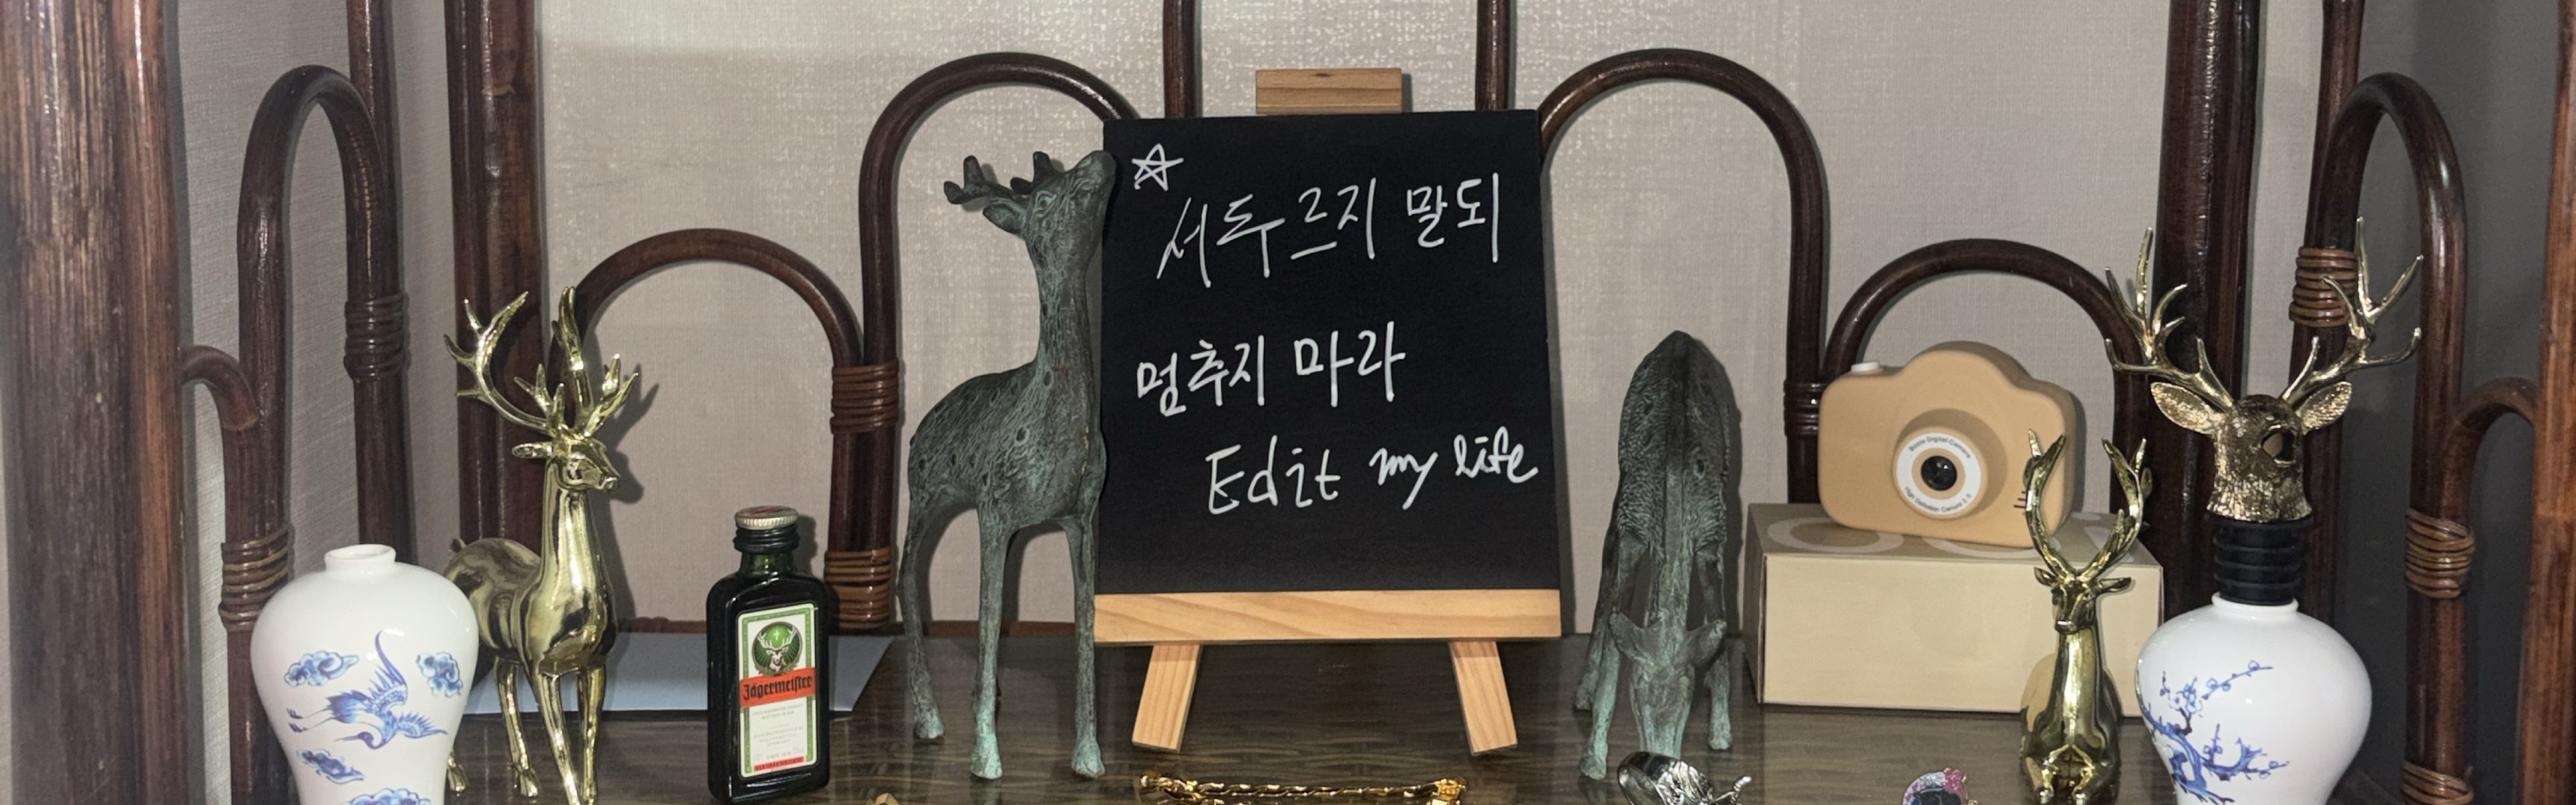 서두르지 말되
멈추지 마라
Edit my life
Jägermeister
Digital Camera